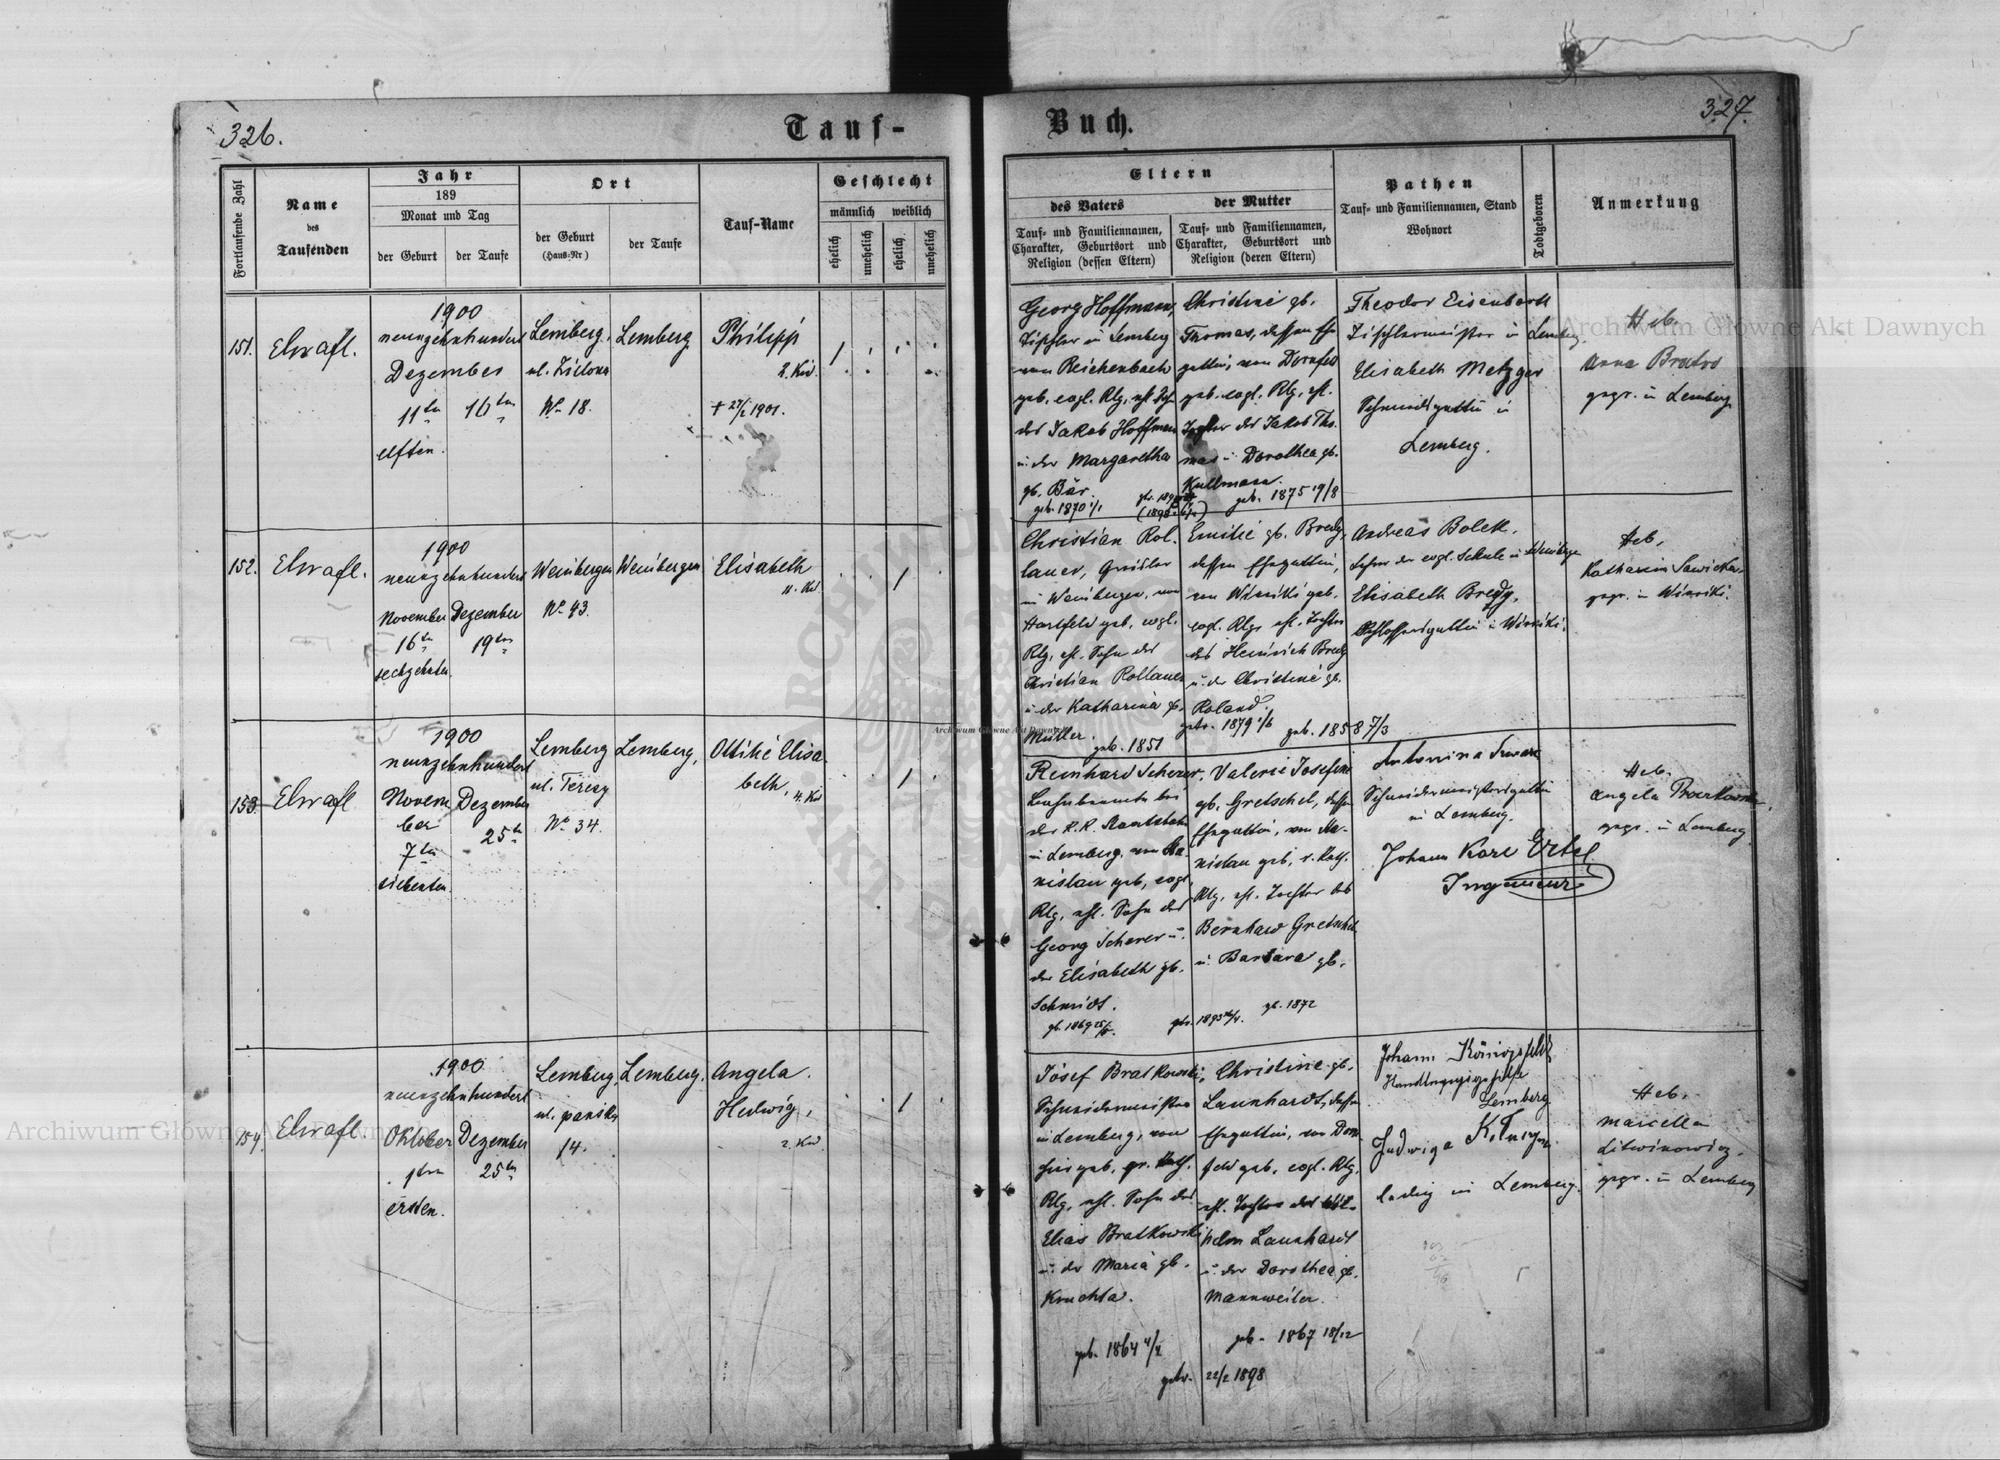 326.
Tauf-
Buch.
327.
Fortlaufende Zahl
Name
des
Taufenden
Jahr
189
Monat und Tag
der Geburt
der Taufe
Ort
der Geburt
(Haus-Nr)
der Taufe
Tauf-Name
Geschlecht
männlich
weiblich
ehelich
unehelich
ehelich
unehelich
Eltern
des Vaters
Tauf- und Familiennamen,
Charakter, Geburtsort und
Religion (dessen Eltern)
der Mutter
Tauf- und Familiennamen,
Charakter, Geburtsort und
Religion (deren Eltern)
Pathen
Tauf- und Familiennamen, Stand
Wohnort
Todtgeboren
Anmerkung
151.
1900
neunzehnhundert
Dezember
11ten
16ten
elften.
Lemberg,
ul. Zielona
No 18.
Lemberg
Philipp
2. Kd.
+ 27/2 1901.
Georg Hoffmann,
Tischler in Lemberg
von Reichenbach
geb. evgl. Rlg,
des Jakob Hoffmann
u. der Margaretha
gb. Bär.
geb. 1870 1/1
Christine gb.
Thomas, dessen Ehe
gattin, von Dornfeld
geb. evgl. Rlg,
Tochter des Jakob Tho
mas u. Dorothea gb.
Kullmann.
geb. 1875 19/8
Theodor Eisenbart
Tischlermeister in Lemberg.
Elisabeth Metzger
Schmidsgattin in
Lemberg.
Heb.
Anna
gepr. in Lemberg
152.
1900
neunzehnhundert
November
16ten
sechzehnten
Dezember
19ten
Weinbergen
No 43.
Weinbergen
Elisabeth
11. Kd.
Christian Rol.
lauer,
in Weinbergen, von
Hartfeld geb. evgl.
Rlg, ehl. Sohn des
Christian Rollauer
u. der Katharina gb.
Müller.
geb. 1851
Emilie gb. Bredy
dessen Ehegattin,
von Winniki geb.
evgl. Rlg, ehl. Tochter
des Heinrich Bredy
u. der Christine gb.
Roland.
getr. 1879 1/6
geb. 1858 7/3
Andreas Bolek,
Lehrer der evgl. Schule in Weinbergen
Elisabeth Bredy,
Schlossersgattin in Winniki.
Heb.
gepr. in Winniki.
153.
1900
neunzehnhundert
Novem
ber
7ten
siebenten
Dezember
25ten
Lemberg
ul. Teresy
No 34.
Lemberg,
Ottilie Elisa
beth,
4. Kd
Reinhard Scherer,
der K. K. Staatsbahn
in Lemberg, von Sta-
nislau geb, evgl.
Rlg, ehl. Sohn des
Georg Scherer u.
der Elisabeth gb.
Schmidt.
gb. 1869
Valerie Josefine
gb. Gretschel, dessen
Ehegattin, von Sta-
nislau geb, r. kath.
Rlg, ehl. Tochter des
Bernhard Gretschel
u. Barbara gb.
gb. 1872
Antonina
Schneidermeistersgattin
in Lemberg.
Johann Karl Ertel
Ingenieur
Heb.
Angela
gepr. in Lemberg
154.
1900
neunzehnhundert
Oktober
1ten
ersten.
Dezember
25ten
Lemberg
ul. pańska
14.
Lemberg,
Angela.
Hedwig,
2. Kd
Josef Bratkowski,
Schneidermeister
in Lemberg, von
geb, gr. kath.
Rlg, ehl. Sohn des
Elias Bratkowski
u. der Maria gb.
Kruchta.
geb. 1864
Christine gb.
Launhardt, dessen
Ehegattin, von Dorn
feld geb, evgl. Rlg,
ehl. Tochter des Wil-
helm Launhardt
u. der Dorothea gb.
Mannweiler.
geb. 1867 18/12
getr. 22/2 1898
Johann Königsfeld
Lemberg
Jadwiga
ledig in Lemberg.
Heb.
Marcella
Litwinowicz,
gepr. in Lemberg
Archiwum Główne Akt Dawnych
Archiwum Główne Akt Dawnych
Archiwum Główne Akt Dawnych